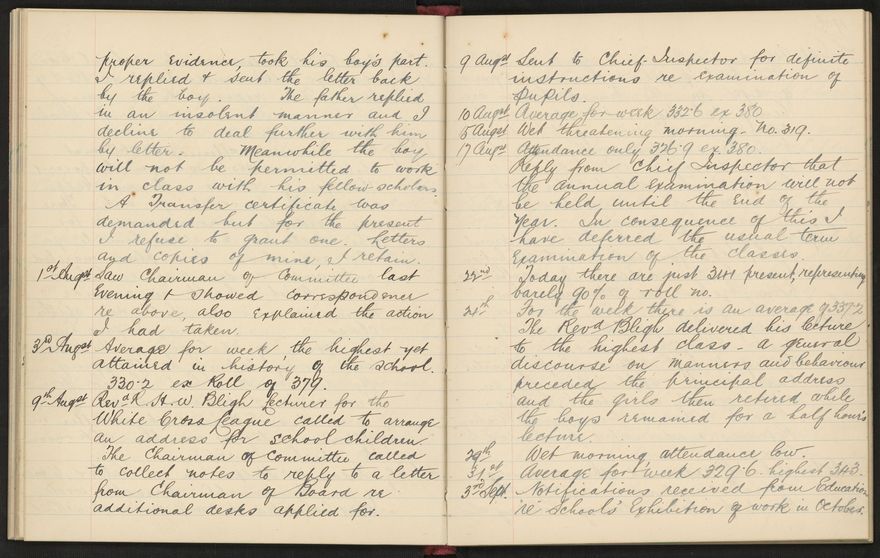 proper evidence, took his boy's part.
I replied & sent the letter back
by the boy. The father replied
in an insolent manner and I
decline to deal further with him
by letter. Meanwhile the boy
will not be permitted to work
in class with his fellow-scholars.
A Transfer certificate was
demanded but for the present
I refuse to grant one. Letters
and copies of mine, I retain.
1st Augst Saw Chairman of Committee last
Evening & showed correspondence
re above, also explained the action
I had taken.
3rd Augst Average for week the highest yet
attained in history of the school.
330.2 ex Roll of 379.
9th Augst Revd R. H. W. Bligh lecturer for the
White Cross League called to arrange
an address for school children.
The Chairman of Committee called
to collect notes to reply to a letter
from Chairman of Board re
additional desks applied for.
9 Augst Sent to Chief-Inspector for definite
instructions re examination of
Pupils.
10 Augst Average for week 332.6 ex 380
Augst Wet threatening morning - No. 319.
17 Augst Attendance only 326.9 ex 380.
Reply from Chief Inspector that
the annual examination will not
be held until the end of the
Year. In consequence of this I
have deferred the usual term
Examination of the classes.
22nd Today there are just 344 present, representing
barely 90% of roll no.
24th For the week there is an average of 337.2
The Revd Bligh delivered his lecture
to the highest class - a general
discourse on manners and behaviour
preceded the principal address
and the girls then retired while
the boys remained for a half hour's
lecture.
29th Wet morning attendance low.
31st Average for week 329.6 highest 343.
3rd Sept Notifications received from Education
re Schools' Exhibition of work in October.